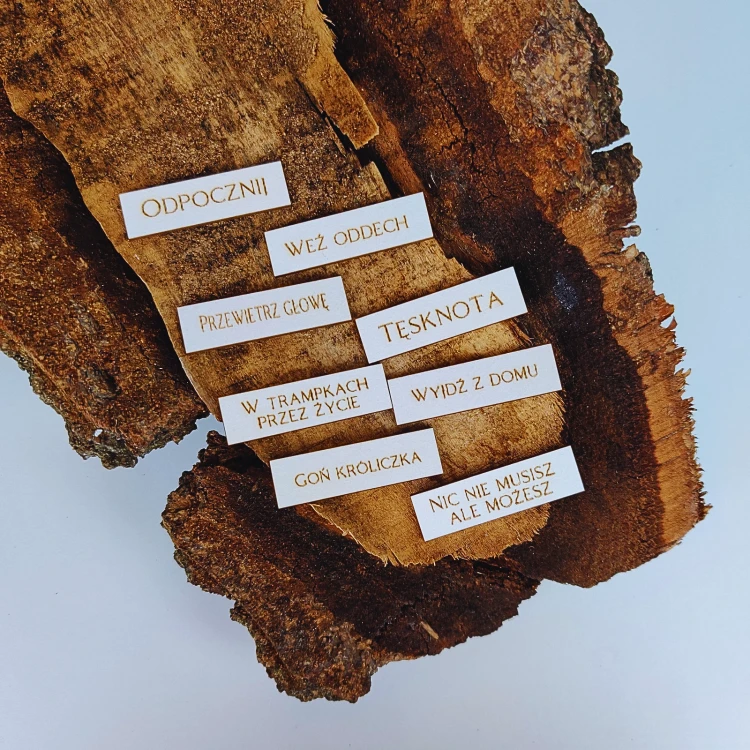 ODPOCZNIJ
WEŹ ODDECH
PRZEWIETRZ GŁOWĘ
TĘSKNOTA
W TRAMPKACH
PRZEZ ŻYCIE
WYJDŹ Z DOMU
GOŃ KRÓLICZKA
NIC NIE MUSISZ
ALE MOŻESZ